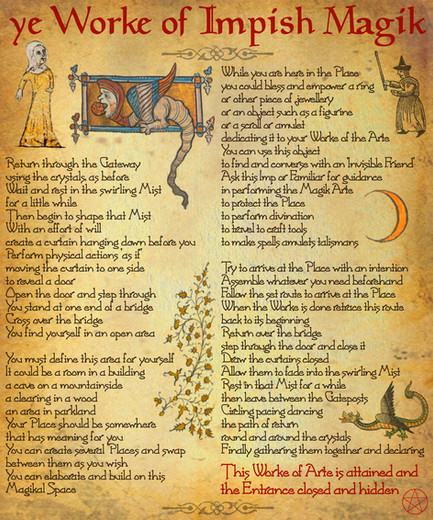 ye Worke of Impish Magik
Return through the Gateway
using the crystals as before
Wait and rest in the swirling Mist
for a little while
Then begin to shape that Mist
With an effort of will
create a curtain hanging down before you
Perform physical actions as if
moving the curtain to one side
to reveal a door
Open the door and step through
You stand at one end of a bridge
Cross over the bridge
You find yourself in an open area
You must define this area for yourself
It could be a room in a building
a cave on a mountainside
a clearing in a wood
an area in parkland
Your Place should be somewhere
that has meaning for you
You can create several Places and swap
between them as you wish
You can elaborate and build on this
Magikal Space
While you are here in the Place
you could bless and empower a ring
or other piece of jewellery
or an object such as a figurine
or a scroll or amulet
dedicating it to your Worke of the Arte
You can use this object
to find and converse with an Invisible Friend
Ask this Imp or Familiar for guidance
in performing the Magik Arte
to protect the Place
to perform divination
to travel to craft tools
to make spells amulets talismans
Try to arrive at the Place with an intention
Assemble whatever you need beforehand
Follow the set route to arrive at the Place
When the Worke is done retrace this route
back to its beginning
Return over the bridge
step through the door and close it
Draw the curtains closed
Allow them to fade into the swirling Mist
Rest in that Mist for a while
then leave between the Gateposts
Circling pacing dancing
the path of return
round and around the crystals
Finally gathering them together and declaring
This Worke of Arte is attained and
the Entrance closed and hidden